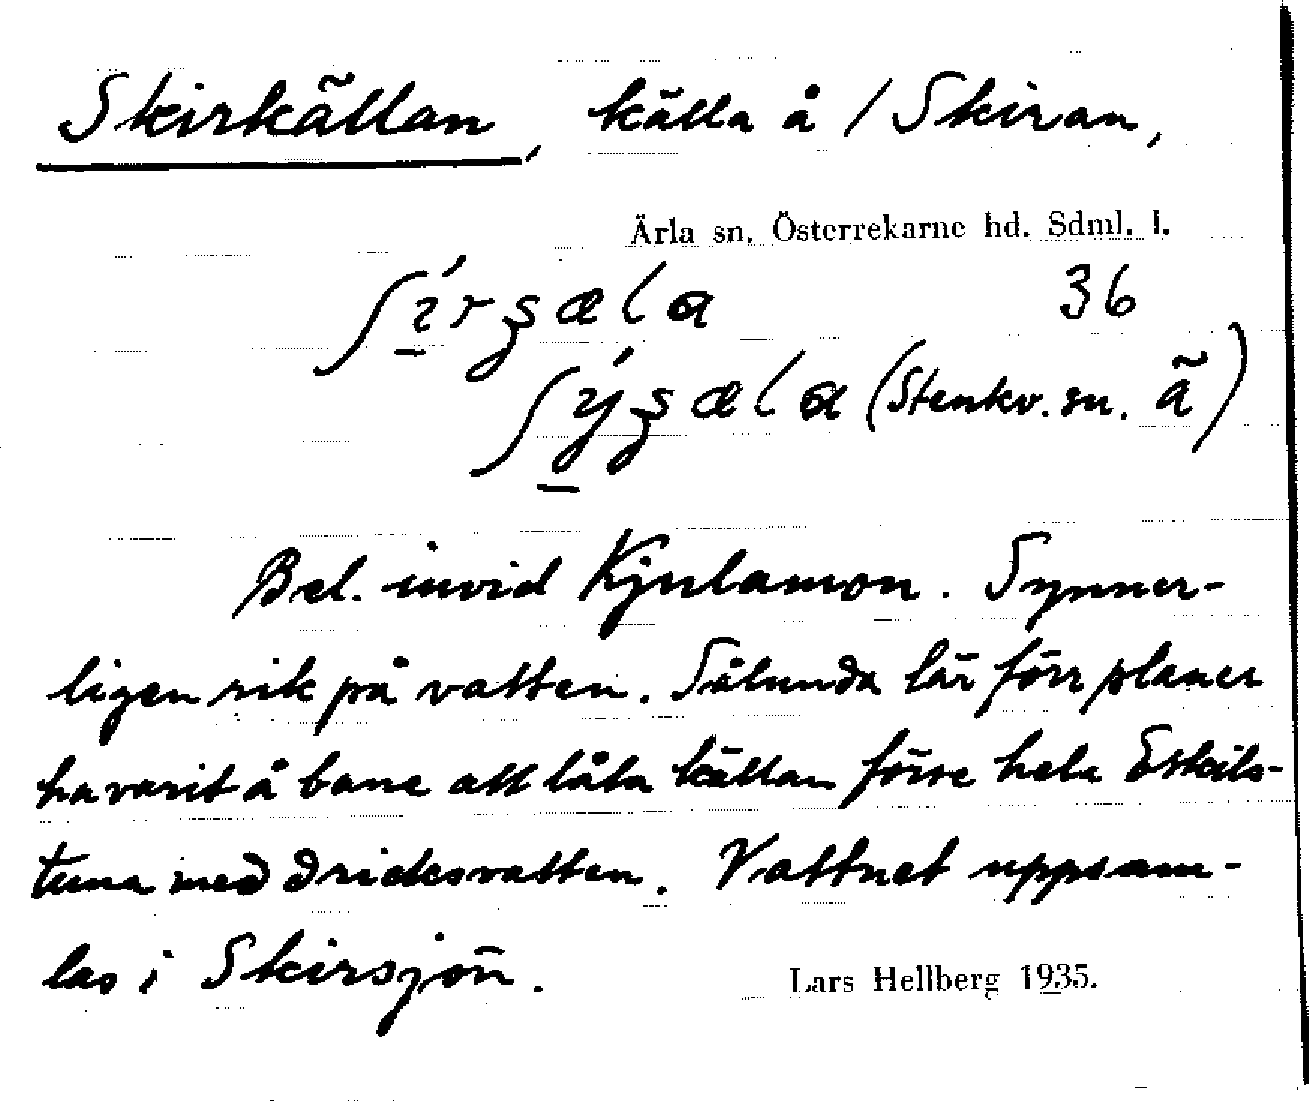 Skirkällan, källa å / Skiran,
Ärla sn. Österrekarne hd. Sdml. l.
36
(Stenkv. sn. ä)
Bel. invid Kjulamon. Synner-
ligen rik på vatten. Sålunda lär förr planer
ha varit å bane att låta källan förse hela Eskils-
tuna med dricksvatten. Vattnet uppsam-
las i Skirsjön.
Lars Hellberg 1935.